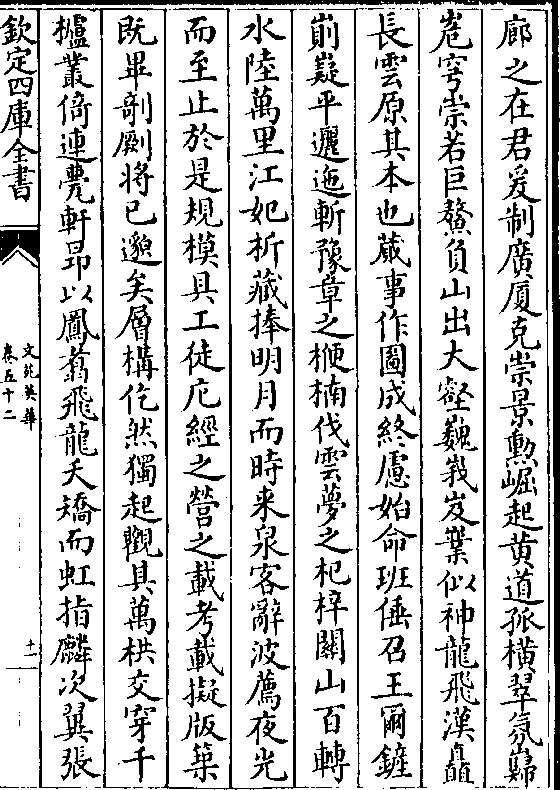 廊之在君爰制廣厦克崇景勲崛起黄道孤横翠氛巋
嵬穹崇若巨鰲負山出大壑巍峩岌業似神龍飛漢矗
長雲原其本也蕆事作圖成終慮始命班倕召王爾鏟
崱嶷平邐迤斬豫章之楩楠伐雲夢之杞梓關山百轉
水陸萬里江妃析藏捧明月而時来泉客辭波薦夜光
而至止於是規模具工徒庀經之營之載考載擬版築
既畢剞劂将已邈矣層構仡然獨起觀其萬栱交穿千
櫨叢倚連甍軒昂以鳳翥飛龍夭矯而虹指麟次翼張
欽定四庫全書
文苑英華
卷五十二
十一